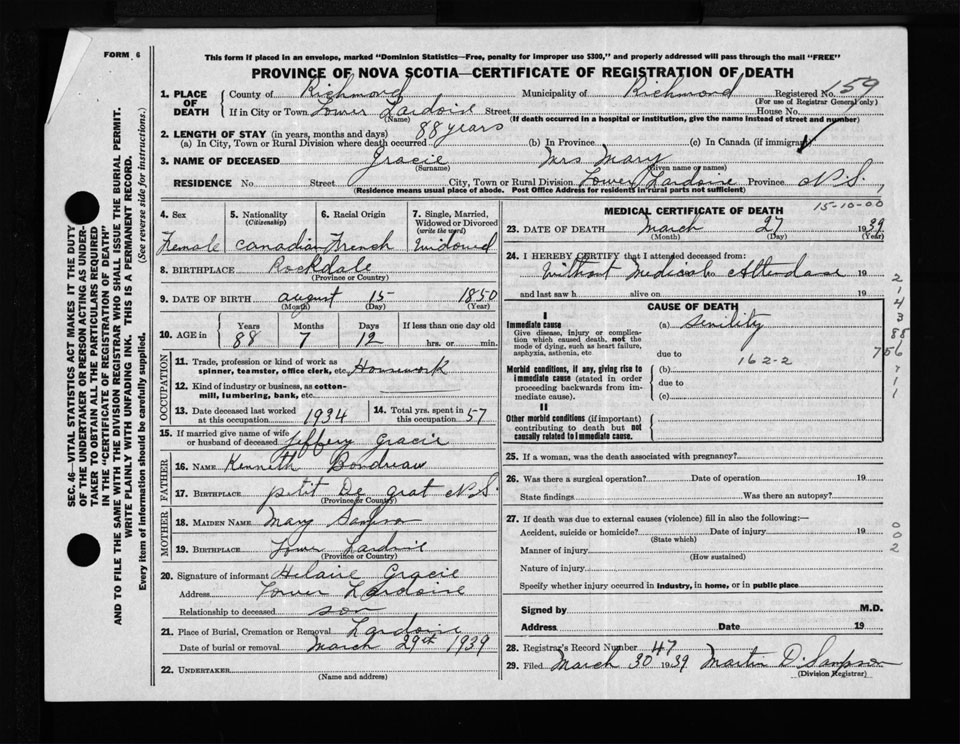 FORM 6
This form if placed in an envelope, marked "Dominion Statistics—Free, penalty for improper use $300," and properly addressed will pass through the mail "FREE"
PROVINCE OF NOVA SCOTIA—CERTIFICATE OF REGISTRATION OF DEATH
SEC. 46—VITAL STATISTICS ACT MAKES IT THE DUTY
OF THE UNDERTAKER OR PERSON ACTING AS UNDER-
TAKER TO OBTAIN ALL THE PARTICULARS REQUIRED
IN THE "CERTIFICATE OF REGISTRATION OF DEATH"
AND TO FILE THE SAME WITH THE DIVISION REGISTRAR WHO SHALL ISSUE THE BURIAL PERMIT.
WRITE PLAINLY WITH UNFADING INK. THIS IS A PERMANENT RECORD.
Every item of information should be carefully supplied. (See reverse side for instructions.)
1. PLACE OF DEATH County of Richmond Municipality of Richmond Registered No. 159
(For use of Registrar General only)
If in City or Town Lower Lardoise Street House No.
(Name) (If death occurred in a hospital or institution, give the name instead of street and number)
2. LENGTH OF STAY (in years, months and days) 88 years
(a) In City, Town or Rural Division where death occurred (b) In Province (c) In Canada (if immigrant)
3. NAME OF DECEASED Gracie Mrs Mary
(Surname) (Given name or names)
RESIDENCE No. Street City, Town or Rural Division Lower Lardoise Province N.S.
(Residence means usual place of abode. Post Office Address for residents in rural parts not sufficient)
4. Sex Female
5. Nationality (Citizenship) Canadian
6. Racial Origin French
7. Single, Married, Widowed or Divorced (write the word) Widowed
8. BIRTHPLACE Rockdale
(Province or Country)
9. DATE OF BIRTH August 15 1850
(Month) (Day) (Year)
10. AGE in Years 88 Months 7 Days 12 If less than one day old hrs. or min.
OCCUPATION
11. Trade, profession or kind of work as spinner, teamster, office clerk, etc. Housework
12. Kind of industry or business, as cotton-mill, lumbering, bank, etc.
13. Date deceased last worked at this occupation 1934
14. Total yrs. spent in this occupation 57
15. If married give name of wife or husband of deceased Jeffery Gracie
FATHER
16. NAME Kenneth Boudreau
17. BIRTHPLACE Petit De Grat N.S.
(Province or Country)
MOTHER
18. MAIDEN NAME Mary Sampson
19. BIRTHPLACE Lower Lardoise
(Province or Country)
20. Signature of informant Hilaire Gracie
Address Lower Lardoise
Relationship to deceased son
21. Place of Burial, Cremation or Removal Lardoise
Date of burial or removal March 29th 1939
22. UNDERTAKER
(Name and address)
MEDICAL CERTIFICATE OF DEATH 15-10-00
23. DATE OF DEATH March 27 1939
(Month) (Day) (Year)
24. I HEREBY CERTIFY that I attended deceased from:
Without Medical Attendance 19
and last saw h alive on 19
CAUSE OF DEATH
I
Immediate cause
Give disease, injury or complication which caused death, not the mode of dying, such as heart failure, asphyxia, asthenia, etc
(a) Senility
due to 162-2
Morbid conditions, if any, giving rise to immediate cause (stated in order proceeding backwards from immediate cause).
(b)
due to
(c)
II
Other morbid conditions (if important) contributing to death but not causally related to immediate cause.
2
1
4
3
88
756
1
1
25. If a woman, was the death associated with pregnancy?
26. Was there a surgical operation? Date of operation 19
State findings Was there an autopsy?
27. If death was due to external causes (violence) fill in also the following:—
Accident, suicide or homicide? Date of injury 19
(State which)
Manner of injury
(How sustained)
Nature of injury
Specify whether injury occurred in industry, in home, or in public place
0
0
2
Signed by M.D.
Address Date 19
28. Registrar's Record Number 47
29. Filed March 30 1939 Martin D. Sampson
(Division Registrar)